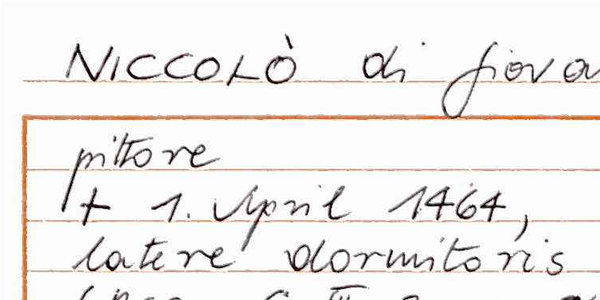 NICCOLÒ di Giova
pittore
+ 1. April 1464,
latere dormitoris